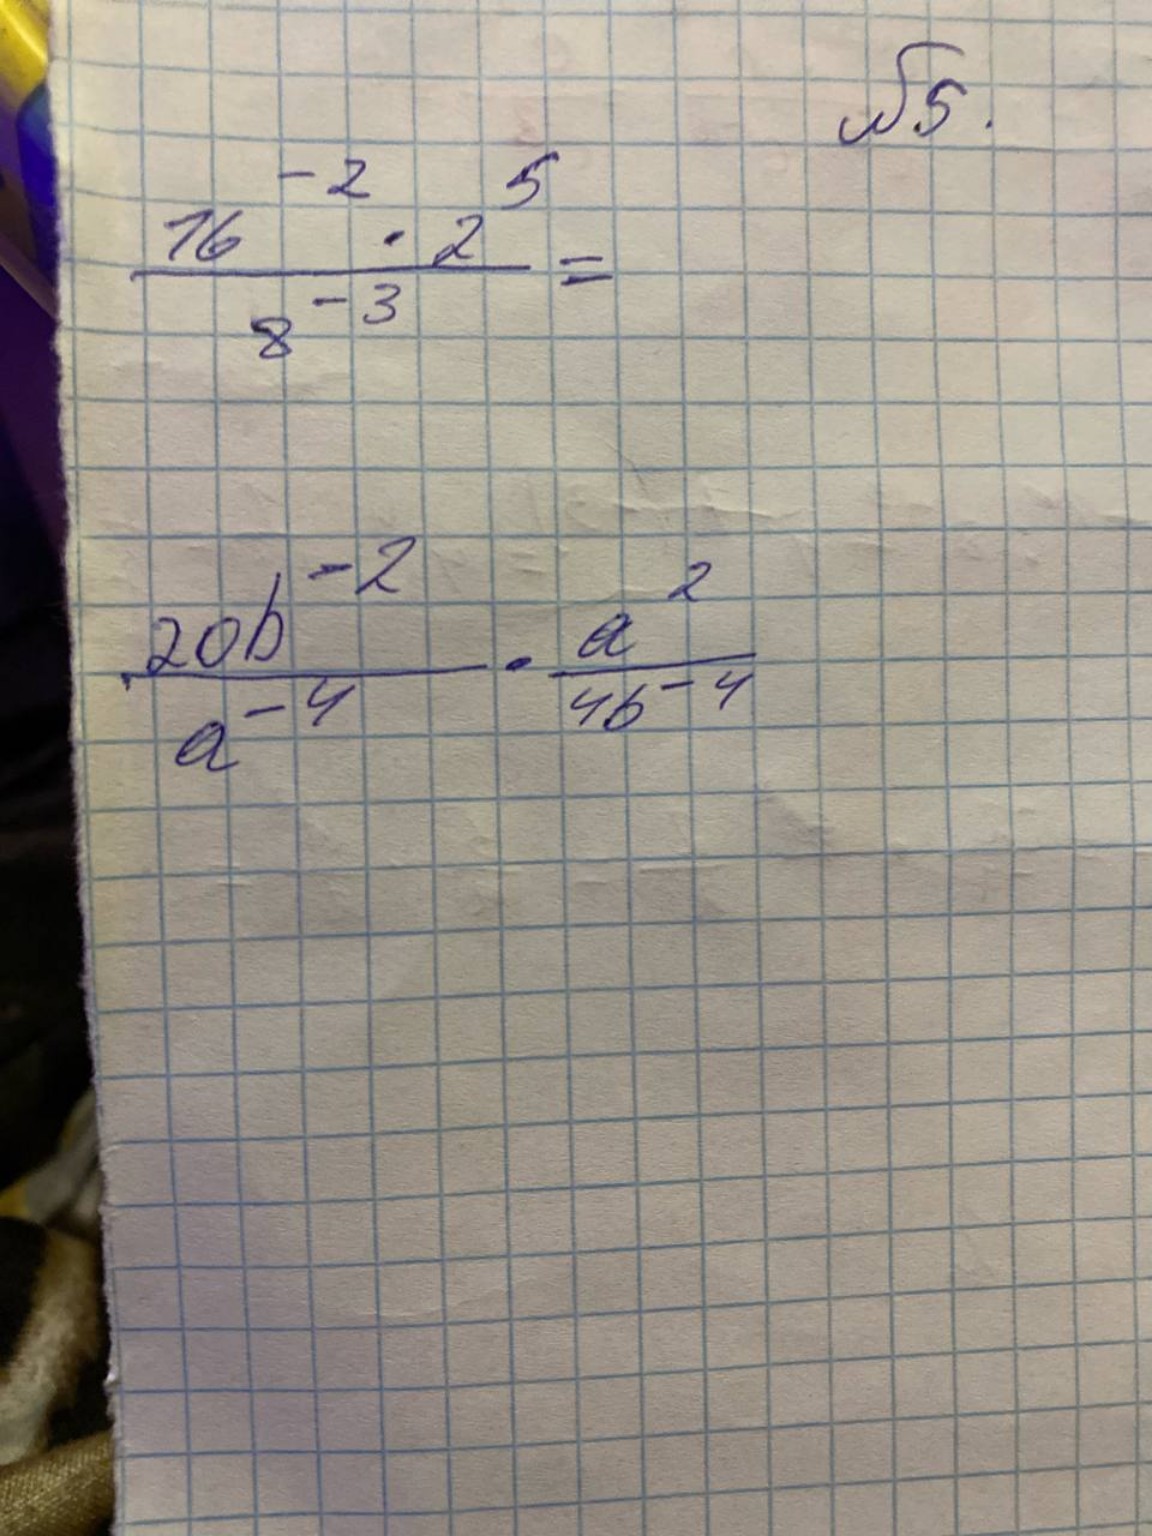 №5.
16^{-2} · 2^5 =
8^{-3}
20b^{-2} · a^2
a^{-4} 4b^{-4}